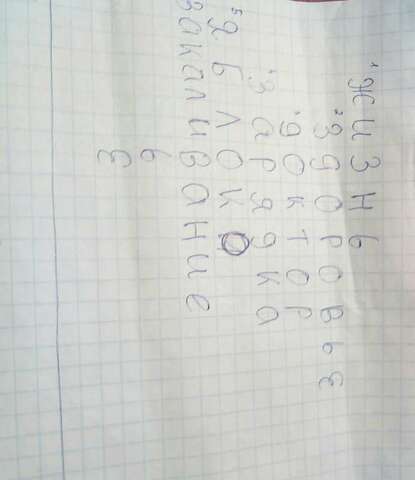 1 жизнь
2 здоровье
доктор
зарядка
5 яблоко
закаливание
ь
е